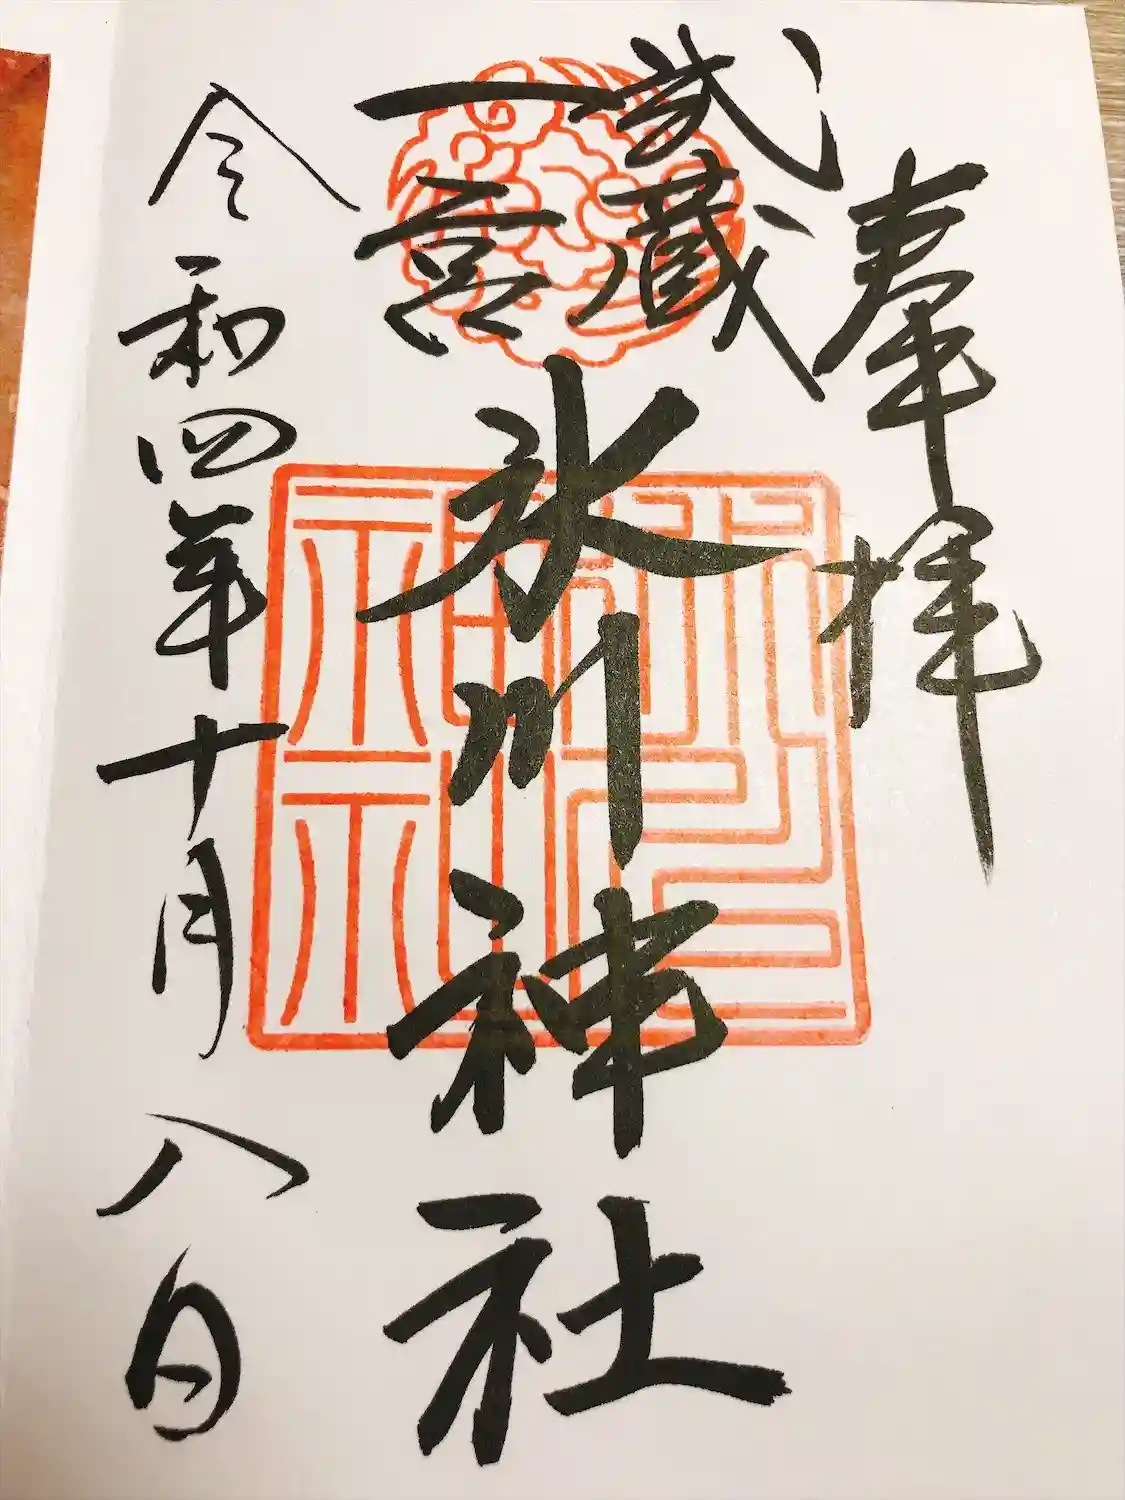 奉拝
武蔵
一宮
氷川神社
令和四年十月八日
氷川神社